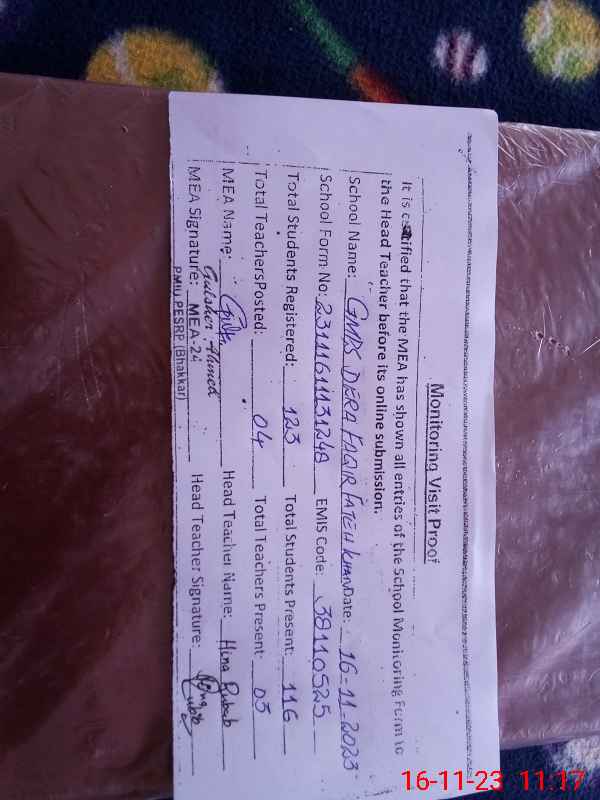 Monitoring Visit Proof
It is certified that the MEA has shown all entries of the School Monitoring Form to
the Head Teacher before its online submission.
School Name: GMPS DERA FAQIR FATEH KHAN Date: 16-11-2023
School Form No: 2311161131248 EMIS Code: 38110525
Total Students Registered: 123 Total Students Present: 116
Total TeachersPosted: 04 Total Teachers Present: 03
MEA Name: Head Teacher Name: Hina Rubab
Gulsher Ahmed
MEA Signature: MEA-24 Head Teacher Signature: Hina Rubab
PMIU PESRP (Bhakkar)
16-11-23 11:17